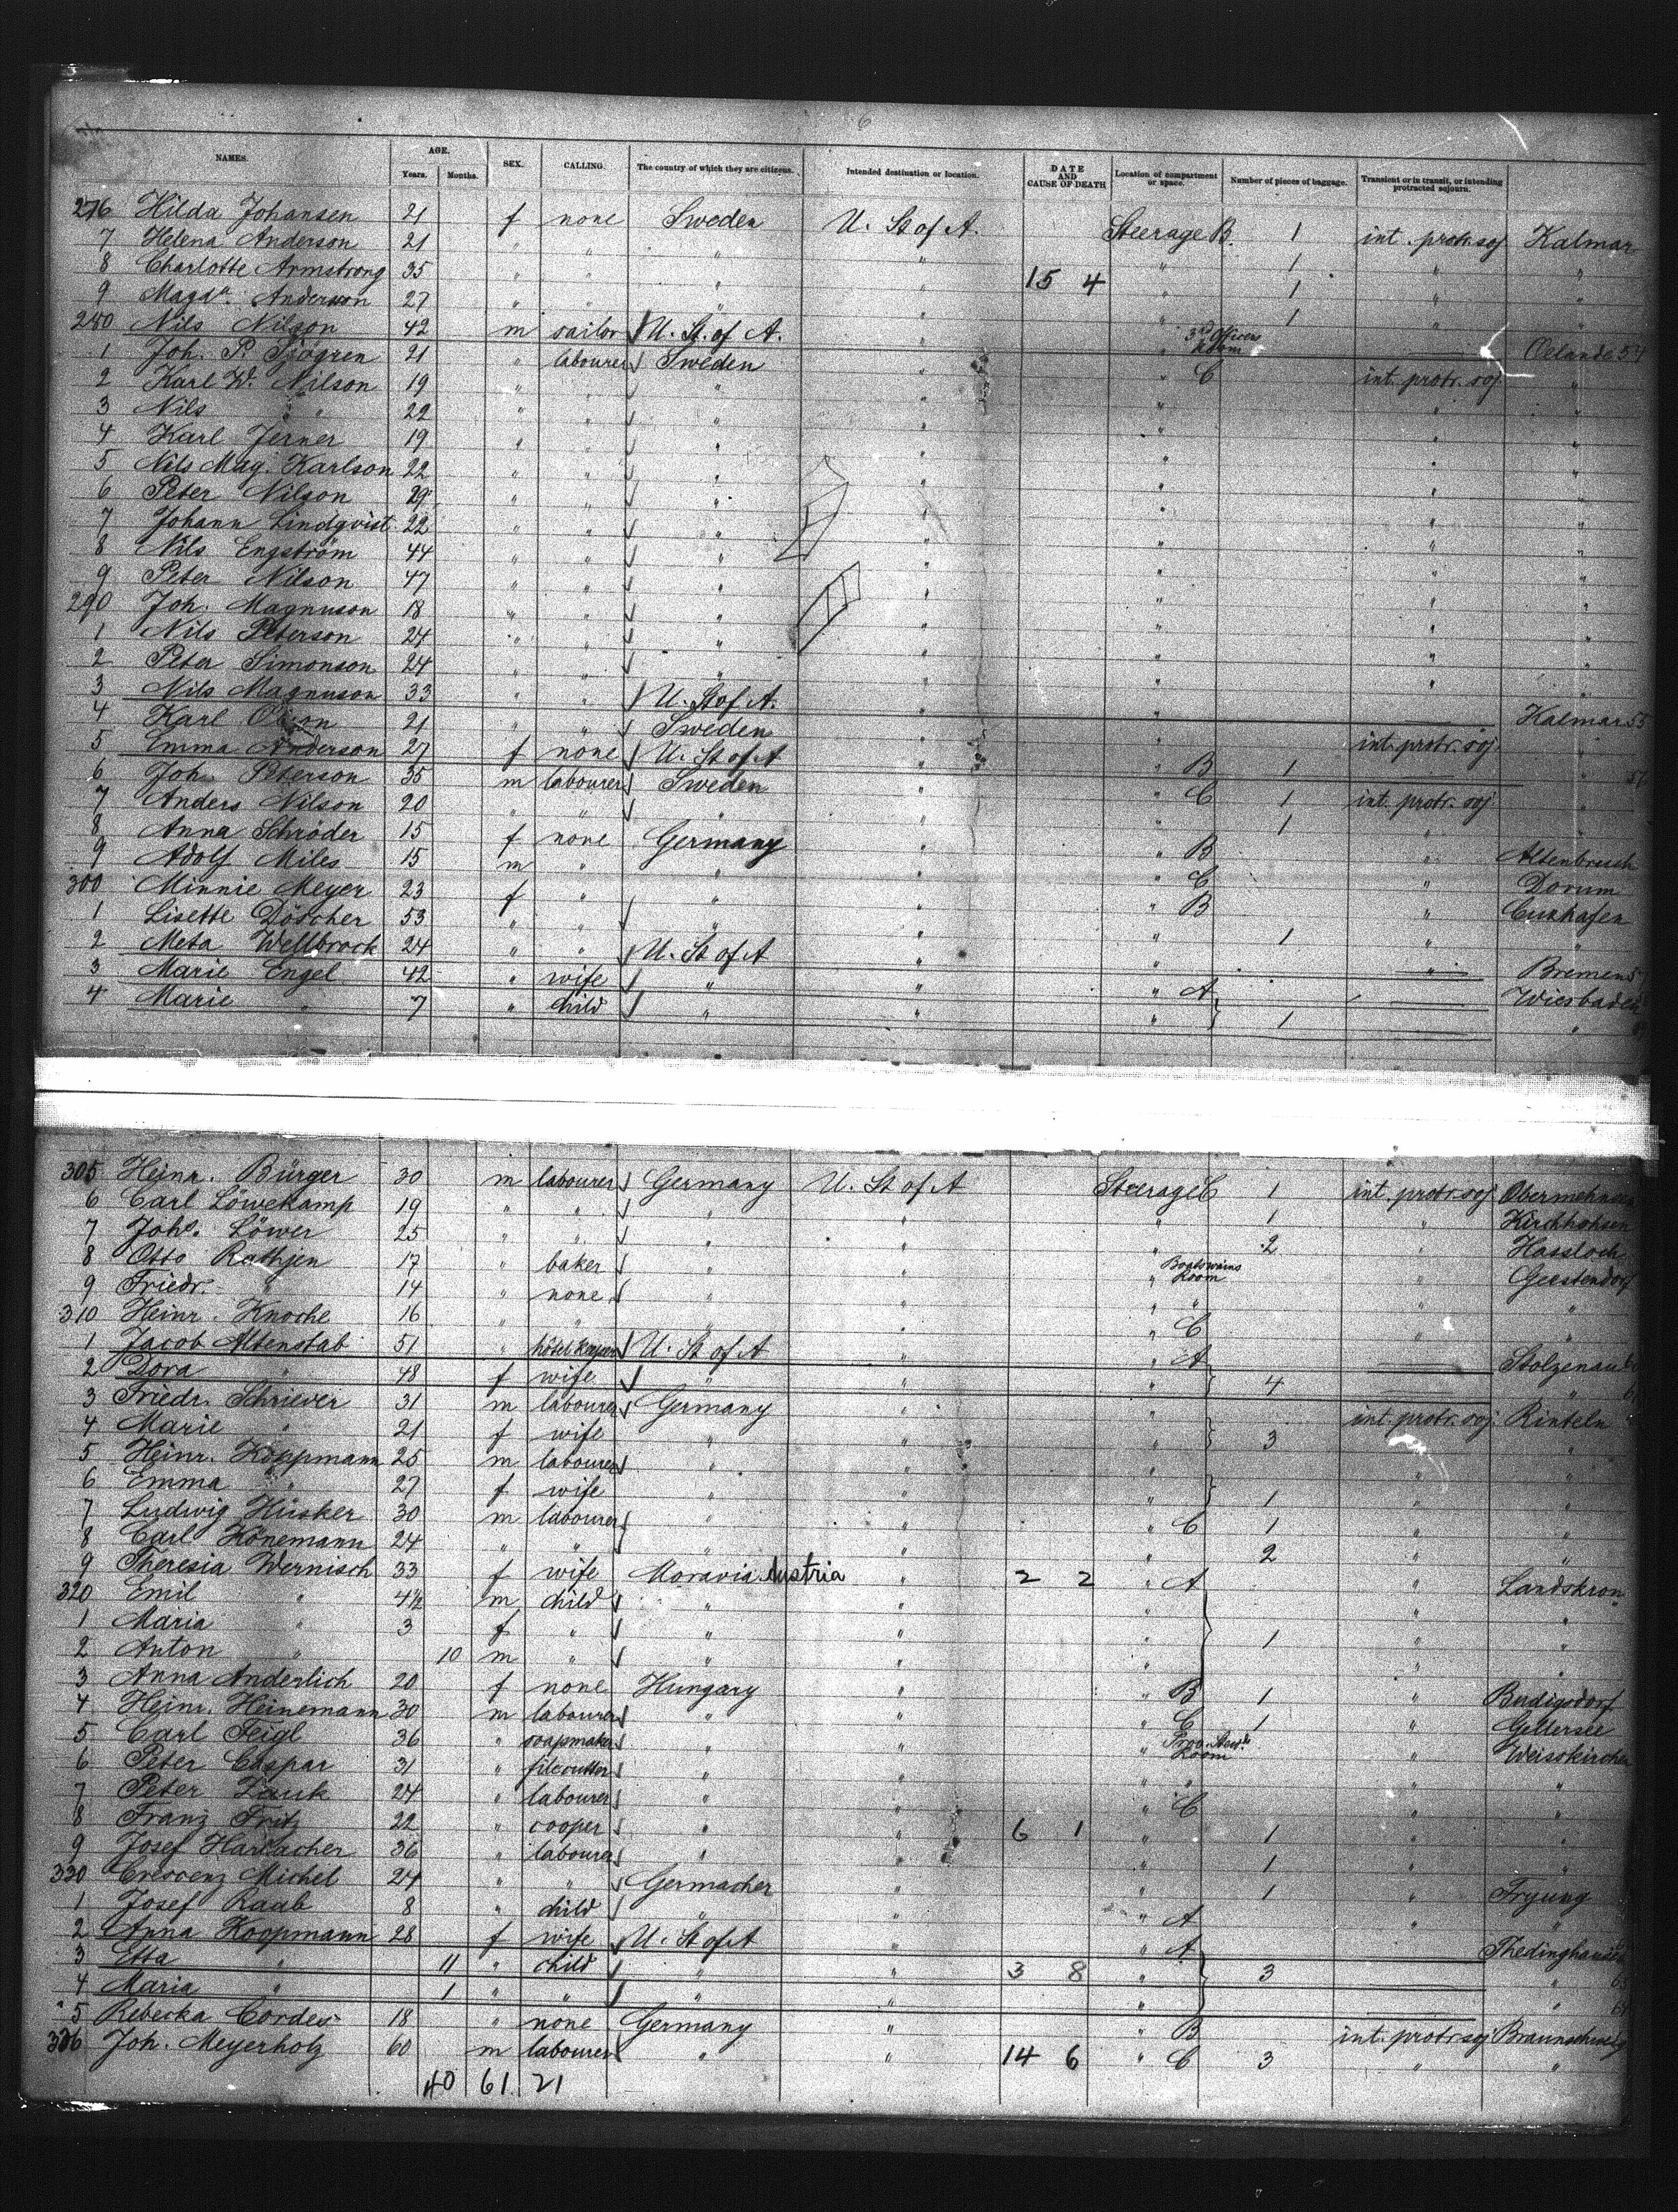 6
NAMES. AGE. Years. Months. SEX. CALLING. The country of which they are citizens. Intended destination or location. DATE AND CAUSE OF DEATH Location of compartment or space. Number of pieces of baggage. Transient or in transit, or intending protracted sojourn.
276 Hilda Johansen 21 f none Sweden U. St of A. Steerage B. 1 int. protr. soj Kalmar
7 Helena Anderson 21 " " " " " 1 " "
8 Charlotte Armstrong 35 " " " " 15 4 " 1 " "
9 Magda. Anderson 27 " " " " " 1 " "
280 Nils Nilson 42 m sailor U. St. of A. " " 3rd Officers Room — Oelande 54
1 Joh. P. Sjögren 21 " labourer Sweden " " C int. protr. soj. "
2 Karl W. Nilson 19 " " " " " " "
3 Nils " 22 " " " " " " "
4 Karl Jerner 19 " " " " " " "
5 Nils Mag. Karlson 22 " " " " " " "
6 Peter Nilson 29 " " " " " " "
7 Johann Lindqvist 22 " " " " " " "
8 Nils Engström 44 " " " " " " "
9 Peter Nilson 47 " " " " " " "
290 Joh. Magnuson 18 " " " " " " "
1 Nils Peterson 24 " " " " " " "
2 Peter Simonson 24 " " " " " " "
3 Nils Magnuson 33 " " U. St of A. " " — Kalmar 55
4 Karl Olson 21 " " Sweden " " int. protr. soj. "
5 Emma Anderson 27 f none U. St of A " " B 1 — " 56
6 Joh. Peterson 35 m labourer Sweden " " C 1 int. protr. soj. "
7 Anders Nilson 20 " " " " " 1 " "
8 Anna Schröder 15 f none Germany " " B " Altenbruch
9 Adolf Miles 15 m " " " " C " Dorum
300 Minnie Meyer 23 f " " " " B " Cuxhafen
1 Lisette Döscher 53 " " " " " 1 " "
2 Meta Wellbrock 24 " " U. St of A " " " Bremen
3 Marie Engel 42 " wife " " " A — Wiesbaden
4 Marie " 7 " child " " " 1 — "
305 Heinr. Bürger 30 m labourer Germany U. St of A Steerage C 1 int. protr. soj.
6 Carl Löwekamp 19 " " " " " 1 " Kirchhohsen
7 Johs. Löwer 25 " " " " " 2 " Hassloch
8 Otto Rathjen 17 " baker " " " Boatswains Room " Geestendorf
9 Friedr. " 14 " none " " " " " "
310 Heinr. Knoche 16 " " " " " C " "
1 Jacob Altenstab 51 " hôtelkeeper U. St of A " " A — Stolzenau
2 Dora " 48 f wife " " " 4 — " 61
3 Friedr. Schriever 31 m labourer Germany " " int. protr. soj. Rinteln
4 Marie " 21 f wife " " " 3 " "
5 Heinr. Koppmann 25 m labourer " " " " "
6 Emma " 27 f wife " " " 1 " "
7 Ludwig Hüsker 30 m labourer " " " C 1 " "
8 Carl Hönemann 24 " " " " " 2 " "
9 Theresia Wernisch 33 f wife Moravia Austria " 2 2 " A " Landskron
320 Emil " 4½ m child " " " " "
1 Maria " 3 f " " " " 1 " "
2 Anton " 10 m " " " " " "
3 Anna Anderlich 20 f none Hungary " " B 1 " Budigsdorf
4 Heinr. Heinemann 30 m labourer " " " C 1 " Gellersee
5 Carl Feigl 36 " soapmaker " " " Prov. Stewds Room " Weisskirchen
6 Peter Caspar 31 " filecutter " " " " " "
7 Peter Zauk 24 " labourer " " " C " "
8 Franz Fritz 22 " cooper " " 6 1 " 1 " "
9 Josef Harlacher 36 " labourer " " " 1 " "
330 Crescenz Michel 24 " " Germacher " " 1 " Fryung
1 Josef Raab 8 " child " " " A " "
2 Anna Koopmann 28 f wife U. St of A " " A Thedinghausen
3 Etta " 11 " child " " 3 8 " 3 — "
4 Maria " 1 " " " " " — "
5 Rebecka Cordes 18 " none Germany " " B int. protr. soj Braunschweig
336 Joh. Meyerholz 60 m labourer " " 14 6 " C 3 " "
40 61 21